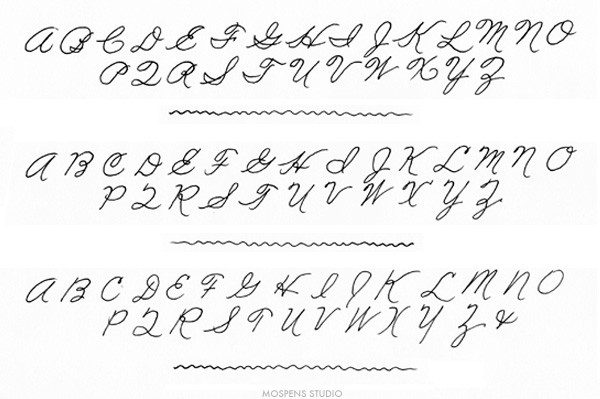 A B C D E F G H I J K L M N O
P Q R S T U V W X Y Z
A B C D E F G H I J K L M N O
P Q R S T U V W X Y Z
A B C D E F G H I J K L M N O
P Q R S T U V W X Y Z &
MOSPENS STUDIO